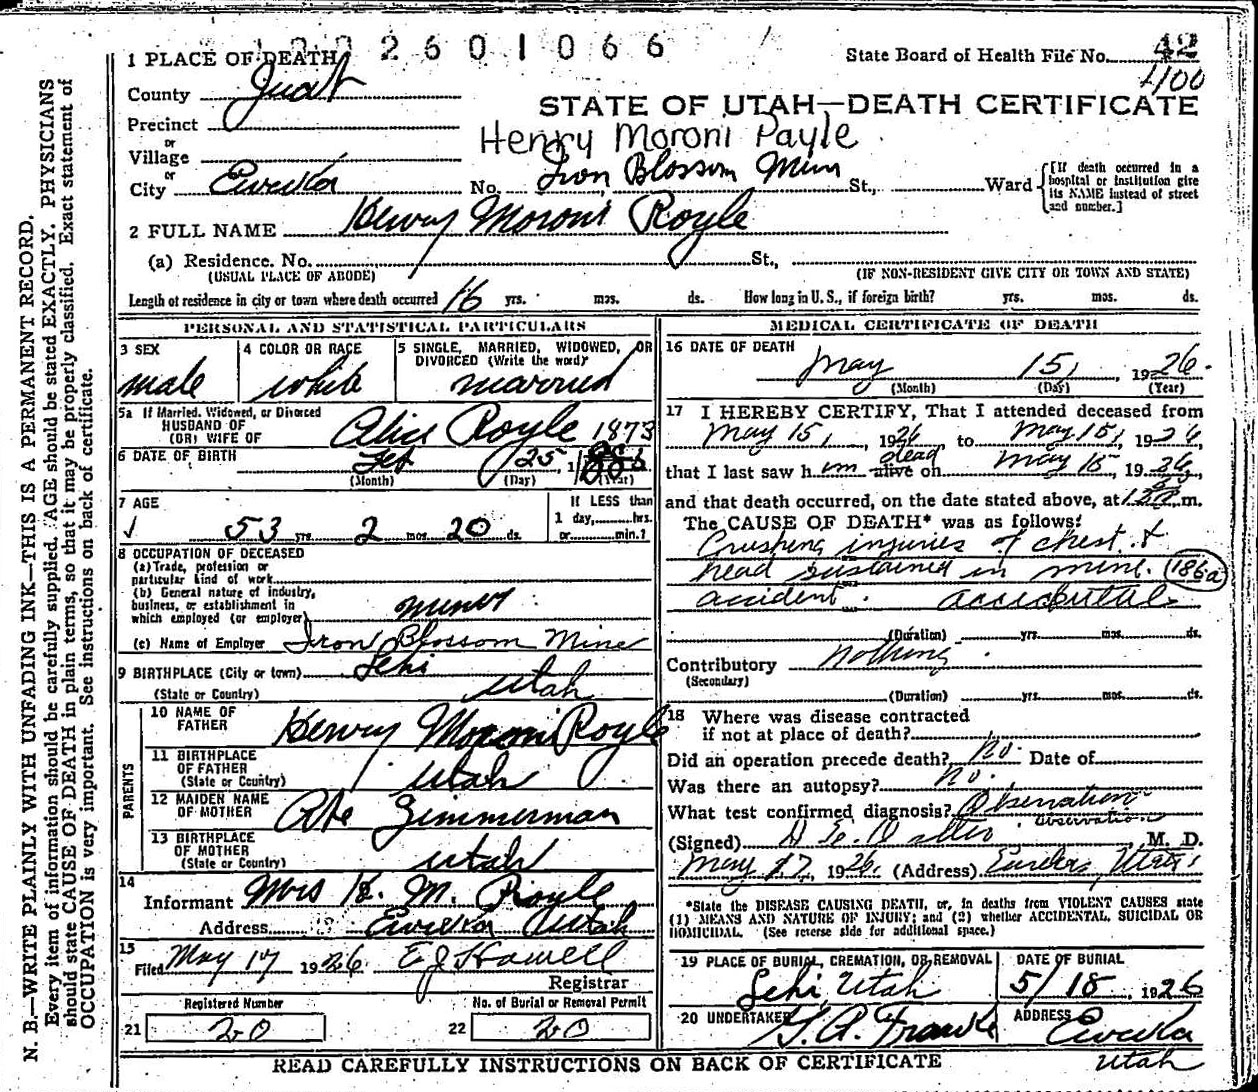 2 6 0 1 0 6 6
1 PLACE OF DEATH
State Board of Health File No. 42
4100
County Juab
STATE OF UTAH—DEATH CERTIFICATE
Precinct
Henry Moroni Payle
or
Village
or
City Eureka No. Iron Blossom Mine St., Ward
[If death occurred in a
hospital or institution give
its NAME instead of street
and number.]
2 FULL NAME Henry Moroni Royle
(a) Residence. No. St.,
(USUAL PLACE OF ABODE) (IF NON-RESIDENT GIVE CITY OR TOWN AND STATE)
Length of residence in city or town where death occurred 16 yrs. mos. ds. How long in U. S., if foreign birth? yrs. mos. ds.
PERSONAL AND STATISTICAL PARTICULARS
3 SEX
male
4 COLOR OR RACE
white
5 SINGLE, MARRIED, WIDOWED, OR
DIVORCED (Write the word)
married
5a If Married, Widowed, or Divorced
HUSBAND OF
(OR) WIFE OF Alice Royle 1873
6 DATE OF BIRTH Feb 25, 1
(Month) (Day) (Year)
7 AGE
53 yrs 2 mos. 20 ds.
If LESS than
1 day, hrs.
or min.?
8 OCCUPATION OF DECEASED
(a) Trade, profession or
particular kind of work
(b) General nature of industry,
business, or establishment in
which employed (or employer) miner
(c) Name of Employer Iron Blossom Mine
9 BIRTHPLACE (City or town) Lehi
(State or Country) Utah
PARENTS
10 NAME OF
FATHER Henry Moroni Royle
11 BIRTHPLACE
OF FATHER
(State or Country) Utah
12 MAIDEN NAME
OF MOTHER Zimmerman
13 BIRTHPLACE
OF MOTHER
(State or Country) Utah
14
Informant Mrs H. M. Royle
Address Eureka Utah
15
Filed May 17 1926 E J Howell
Registrar
Registered Number
21 20
No. of Burial or Removal Permit
22 20
MEDICAL CERTIFICATE OF DEATH
16 DATE OF DEATH
May 15, 1926.
(Month) (Day) (Year)
17 I HEREBY CERTIFY, That I attended deceased from
May 15, 1926 to May 15, 1926,
dead
that I last saw him alive on May 15 1926
and that death occurred, on the date stated above, at m.
The CAUSE OF DEATH* was as follows:
Crushing injuries of chest &
head sustained in mine. 186a
accident. accidental
(Duration) yrs. mos. ds.
Contributory Nothing.
(Secondary)
(Duration) yrs. mos. ds.
18 Where was disease contracted
if not at place of death?
Did an operation precede death? No. Date of
Was there an autopsy? No.
What test confirmed diagnosis? Observation
observation
(Signed) M. D.
May 17, 1926. (Address) Eureka, Utah
*State the DISEASE CAUSING DEATH, or, in deaths from VIOLENT CAUSES state
(1) MEANS AND NATURE OF INJURY; and (2) whether ACCIDENTAL, SUICIDAL OR
HOMICIDAL. (See reverse side for additional space.)
19 PLACE OF BURIAL, CREMATION, OR REMOVAL
Lehi, Utah
DATE OF BURIAL
5/18, 1926
20 UNDERTAKER
ADDRESS
Eureka
Utah
READ CAREFULLY INSTRUCTIONS ON BACK OF CERTIFICATE
N. B.—WRITE PLAINLY WITH UNFADING INK—THIS IS A PERMANENT RECORD.
Every item of information should be carefully supplied. AGE should be stated EXACTLY. PHYSICIANS
should state CAUSE OF DEATH in plain terms, so that it may be properly classified. Exact statement of
OCCUPATION is very important. See instructions on back of certificate.